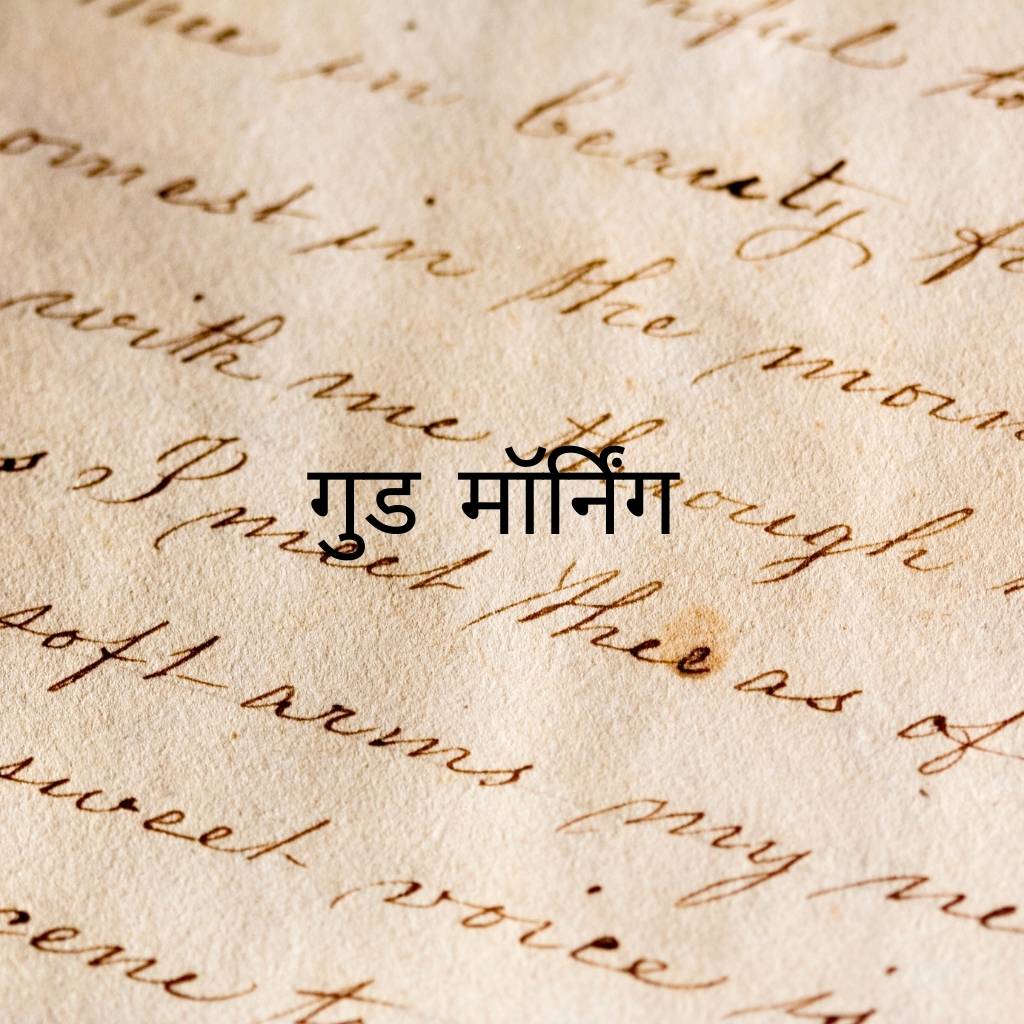 in beauty
in the
with me though
गुड मॉर्निंग
I meet thee as of
soft arms
sweet voice my
to is